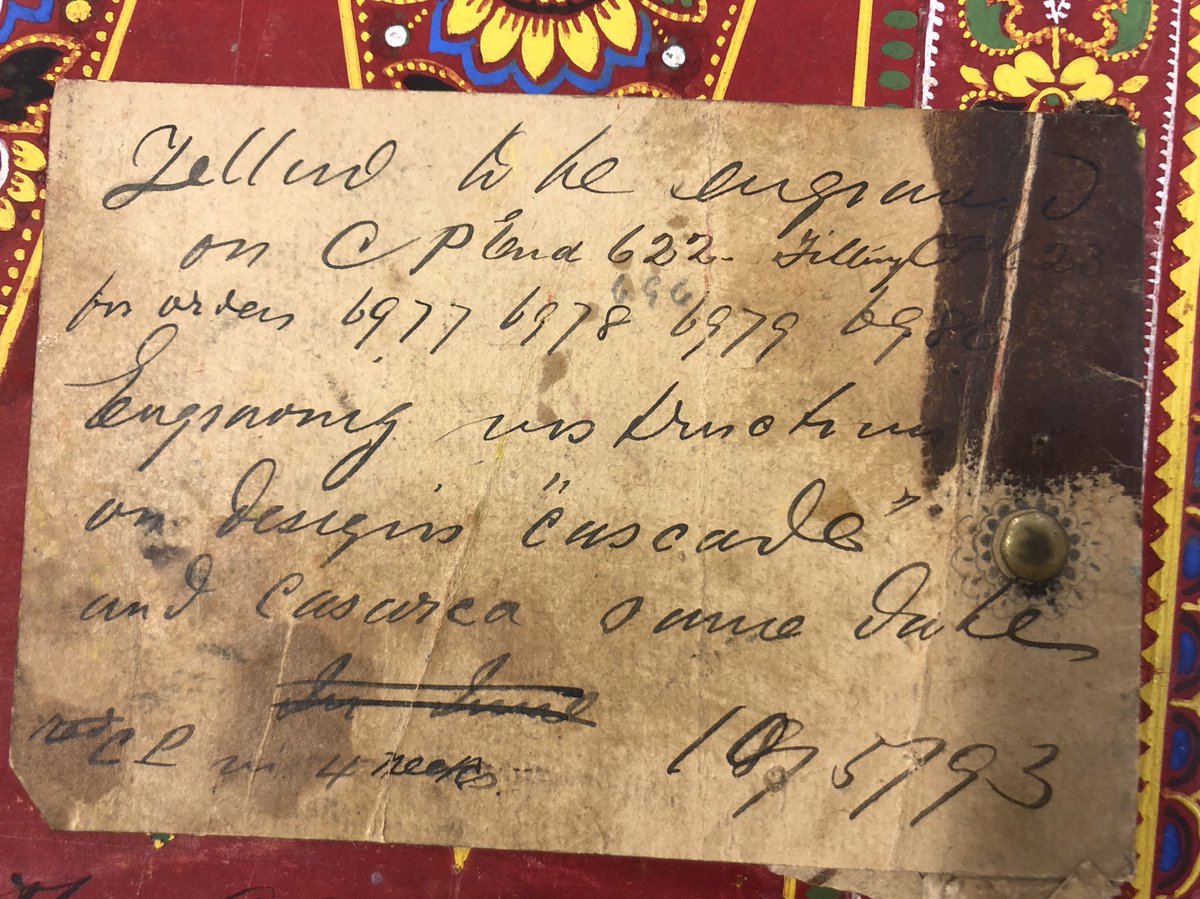 to be engraved
on C P End 622 Filling CP 623
for orders 6977 6978 6979 6980
696
Engraving instructions
on designs "cascade"
and Casarea same date
red CP in 4 weeks.
5/93